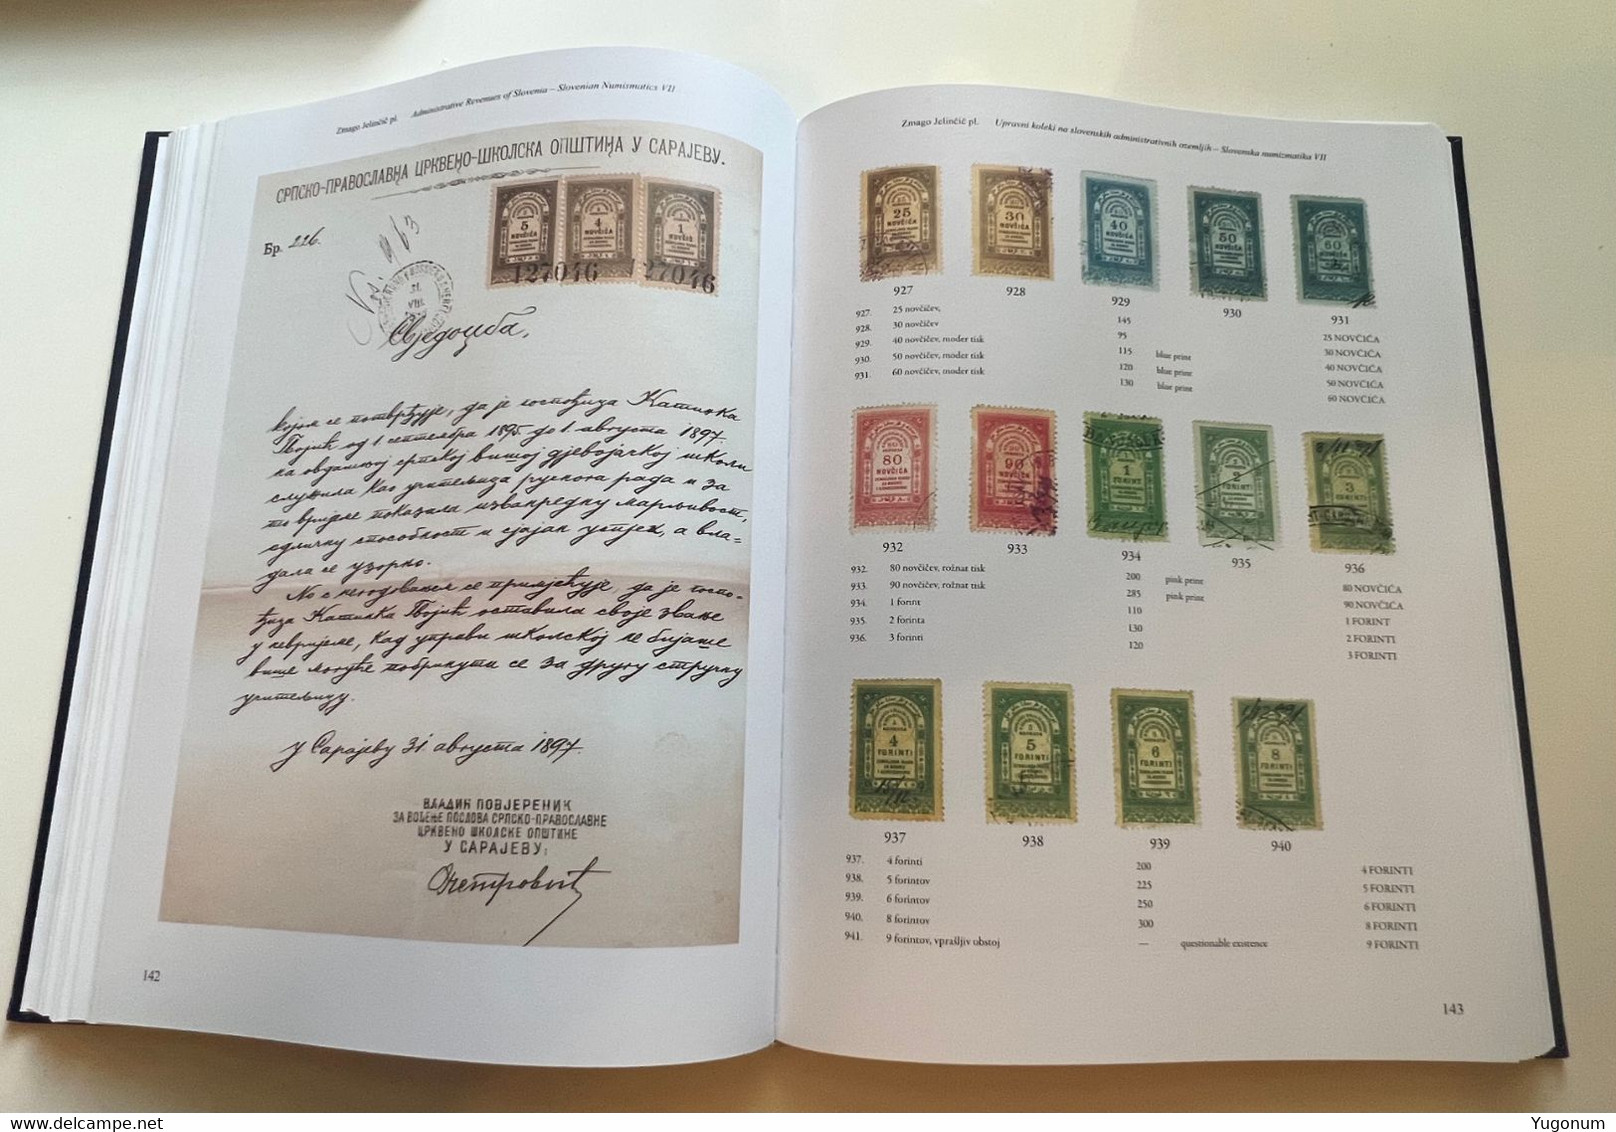 Zmago Jelinčič pl. Administrative Revenues of Slovenia – Slovenian Numismatics VII
СРПСКО-ПРАВОСЛАВНА ЦРКВЕНО-ШКОЛСКА ОПШТИНА У САРАЈЕВУ.
Бр. 226.
5 NOVČIĆA
4 NOVČIĆA
1 NOVČIĆ
127046 127046
Свједоџба,
којом се потврђује, да је госпођица Катинка
Бојић од 1 септембра 1895. до 1. августа 1897.
на овдашњој српској вишој дјевојачкој школи
служила као учитељица ручнога рада и за
то вријеме показала изванредну марљивост,
одличну способност и сјајан успјех, а вла-
дала се узорно.
Но с негодовањем се примјећује, да је госпо-
ђица Катинка Бојић оставила своје звање
у невријеме, кад управи школској не бијаше
више могуће побринути се за другу стручну
учитељицу.
У Сарајеву 31 августа 1897.
ВЛАДИН ПОВЈЕРЕНИК
ЗА ВОЂЕЊЕ ПОСЛОВА СРПСКО-ПРАВОСЛАВНЕ
ЦРКВЕНО ШКОЛСКЕ ОПШТИНЕ
У САРАЈЕВУ:
142
Zmago Jelinčič pl. Upravni koleki na slovenskih administrativnih ozemljih – Slovenska numizmatika VII
25 NOVČIĆA
30 NOVČIĆA
40 NOVČIĆA
50 NOVČIĆA
60 NOVČIĆA
927 928 929 930 931
927. 25 novčičev, 145 25 NOVČIĆA
928. 30 novčičev 95 30 NOVČIĆA
929. 40 novčičev, moder tisk 115 blue print 40 NOVČIĆA
930. 50 novčičev, moder tisk 120 blue print 50 NOVČIĆA
931. 60 novčičev, moder tisk 130 blue print 60 NOVČIĆA
80 NOVČIĆA
90 NOVČIĆA
1 FORINT
2 FORINTI
3 FORINTI
932 933 934 935 936
932. 80 novčičev, rožnat tisk 200 pink print 80 NOVČIĆA
933. 90 novčičev, rožnat tisk 285 pink print 90 NOVČIĆA
934. 1 forint 110 1 FORINT
935. 2 forinta 130 2 FORINTI
936. 3 forinti 120 3 FORINTI
4 FORINTI
5 FORINTI
6 FORINTI
8 FORINTI
937 938 939 940
937. 4 forinti 200 4 FORINTI
938. 5 forintov 225 5 FORINTI
939. 6 forintov 250 6 FORINTI
940. 8 forintov 300 8 FORINTI
941. 9 forintov, vprašljiv obstoj — questionable existence 9 FORINTI
143
delcampe.net
Yugonum